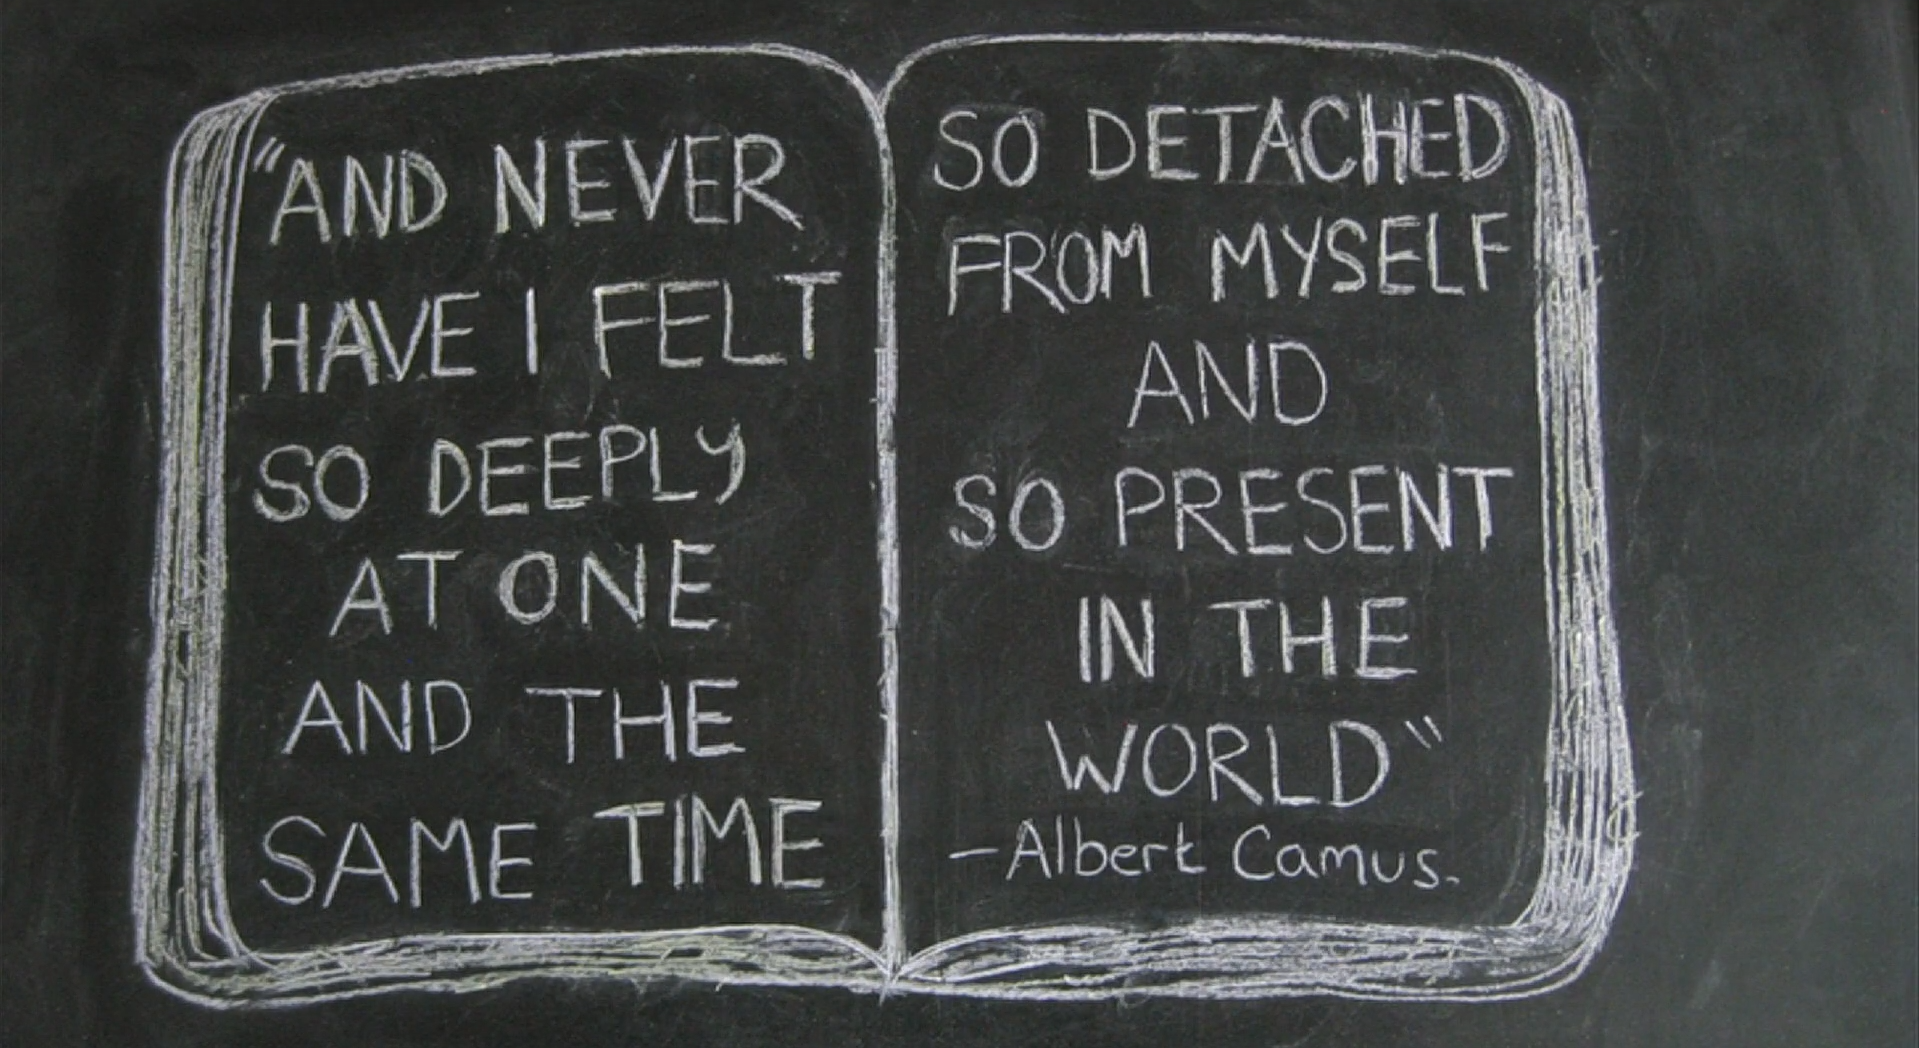 "AND NEVER
HAVE I FELT
SO DEEPLY
AT ONE
AND THE
SAME TIME
SO DETACHED
FROM MYSELF
AND
SO PRESENT
IN THE
WORLD"
-Albert Camus.